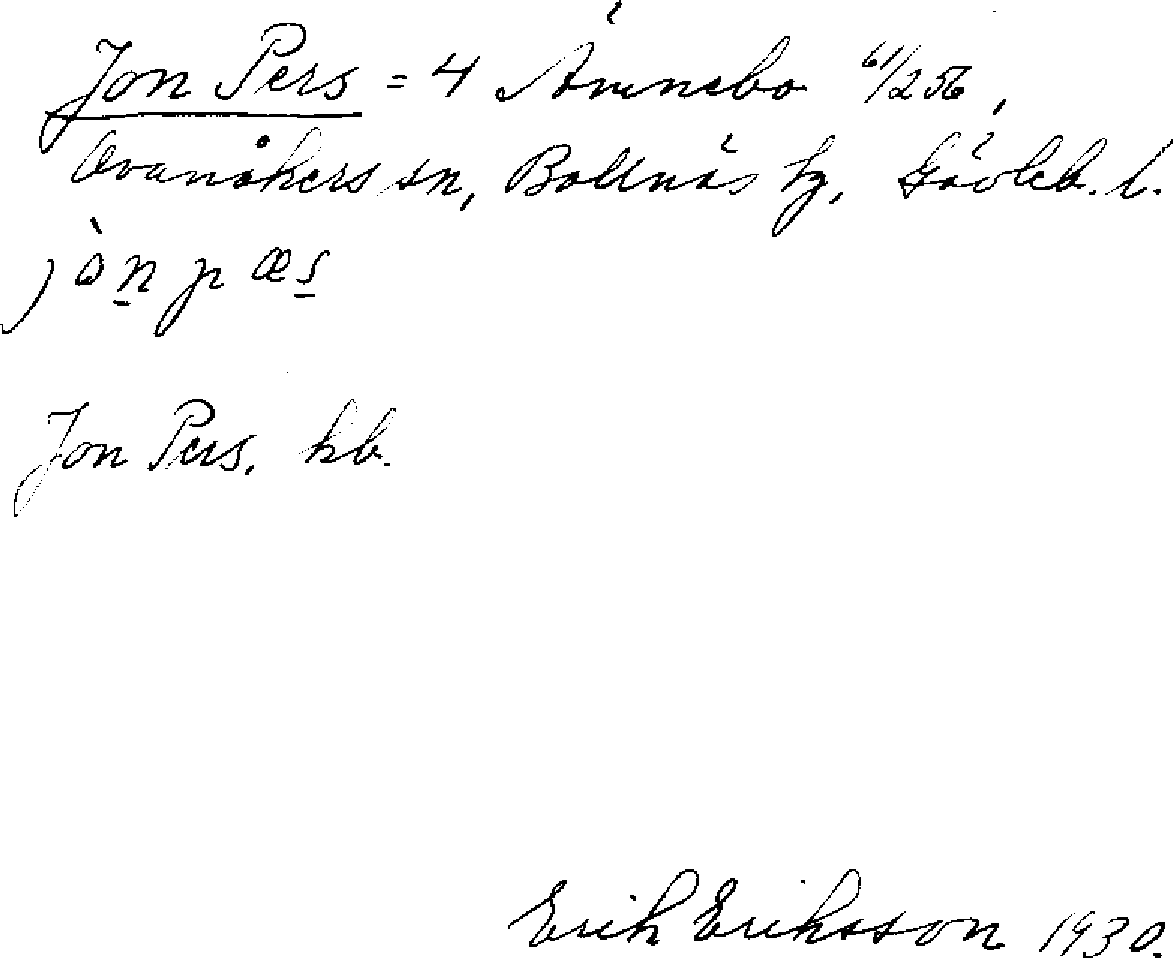 Jon Pers = 4 Ämnebo 61/256,
Ovanåkers sn, Bollnäs tg, Gävleb. l.
jònpæs
Jon Pers, kb.
Erik Eriksson 1930.